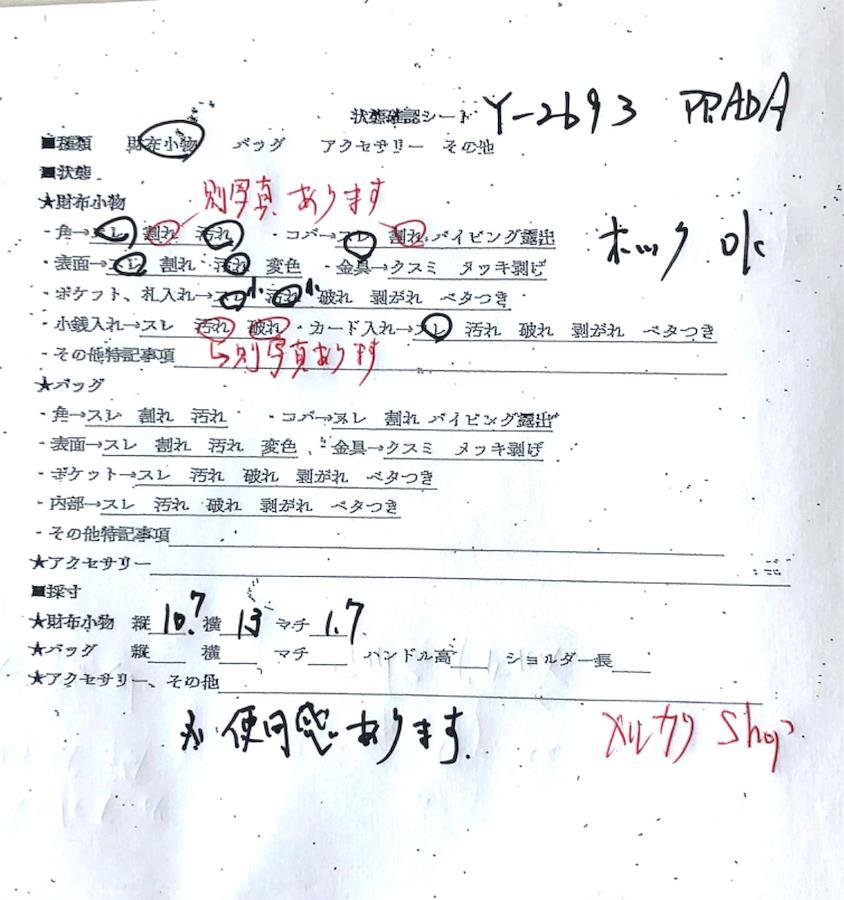 状態確認シート Y-2693 PRADA
■種類 財布小物 バッグ アクセサリー その他
■状態
★財布小物 別写真あります
・角→スレ 割れ 汚れ ・コバ→スレ 割れ パイピング露出
ホック ok
・表面→スレ 割れ 汚れ 変色 ・金具→クスミ メッキ剥げ
・ポケット、札入れ→スレ小 汚れ小 破れ 剥がれ ベタつき
・小銭入れ→スレ 汚れ 破れ ・カード入れ→スレ 汚れ 破れ 剥がれ ベタつき
・その他特記事項 別写真あります
★バッグ
・角→スレ 割れ 汚れ ・コバ→スレ 割れ パイピング露出
・表面→スレ 割れ 汚れ 変色 ・金具→クスミ メッキ剥げ
・ポケット→スレ 汚れ 破れ 剥がれ ベタつき
・内部→スレ 汚れ 破れ 剥がれ ベタつき
・その他特記事項
★アクセサリー
■採寸
★財布小物 縦 10.7 横 13 マチ 1.7
★バッグ 縦 横 マチ ハンドル高 ショルダー長
★アクセサリー、その他
使用感あります.
メルカリ Shop